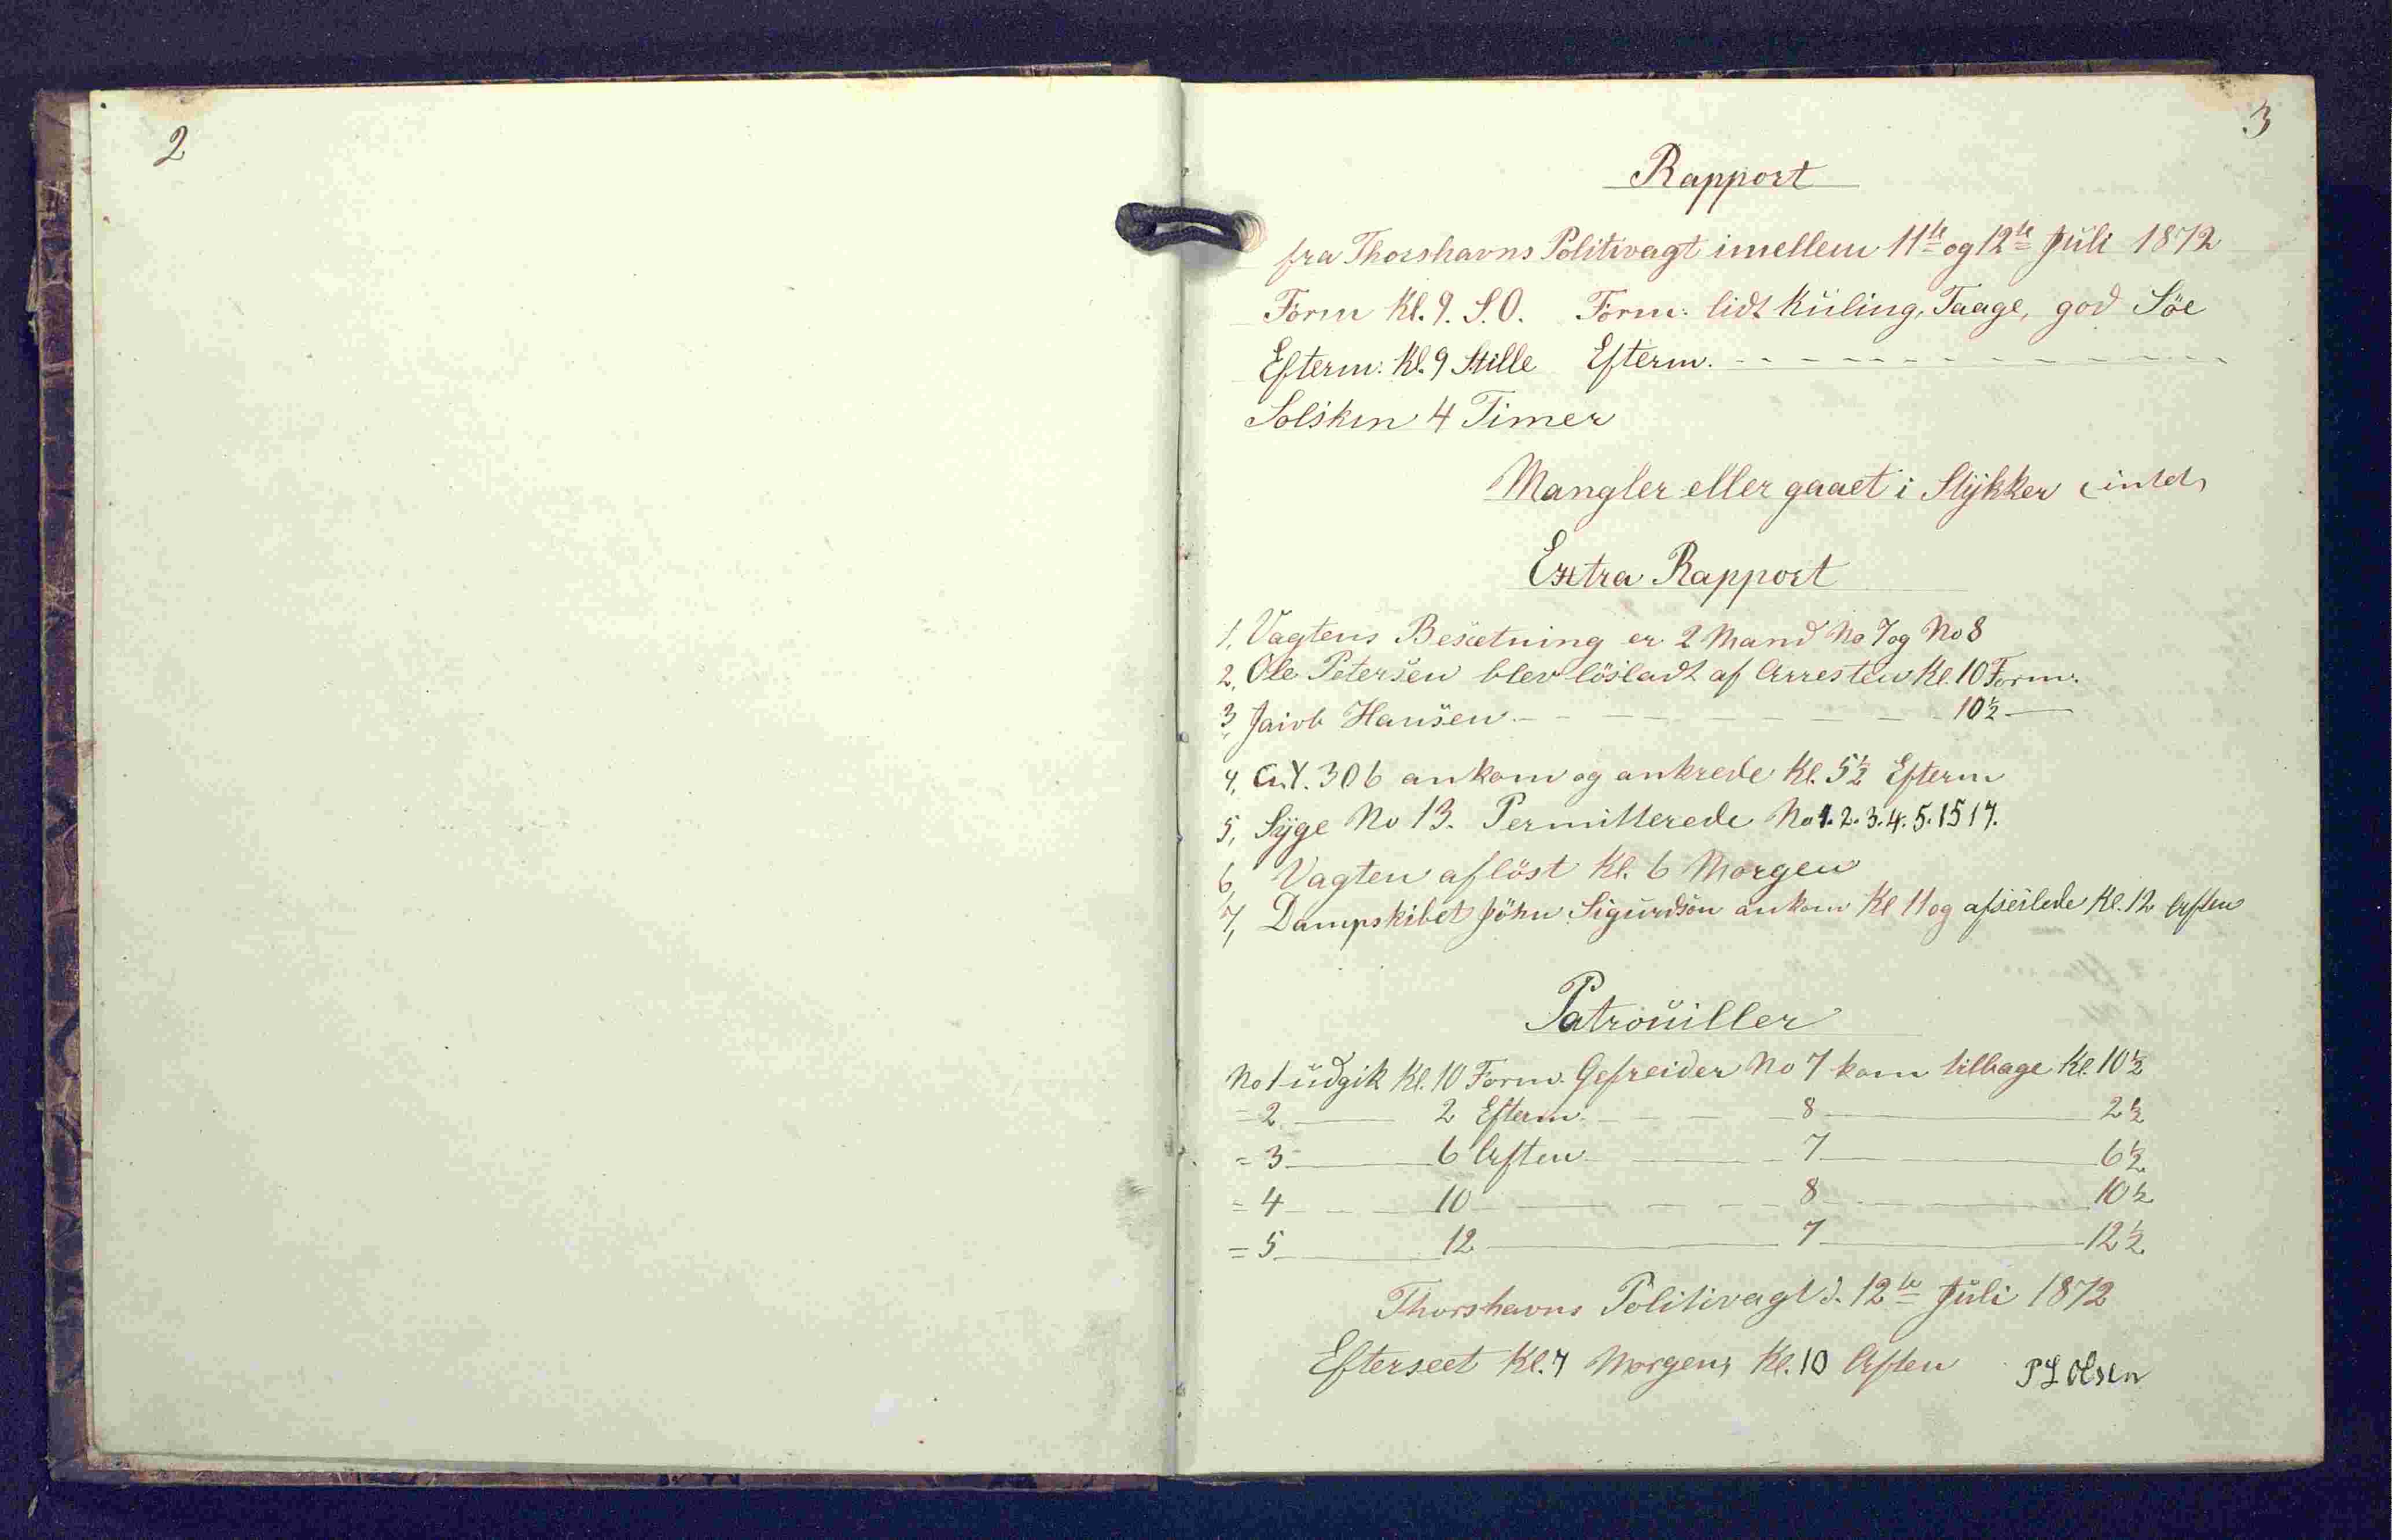 2
3
Rapport
fra Thorshavns Politivagt imellem 11te og 12te Juli 1872
Form Kl. 9. S.O. Form: lidt Kuling, Taage, god Söe
Efterm: Kl. 9 Stille Efterm. - - - - - - - - - - - - - -
Solskin 4 Timer
Mangler eller gaaet i Stykker (intet)
Extra Rapport
1, Vagtens Besætning er 2 Mand No 7 og No 8
2, Ole Petersen blev lösladt af Arresten Kl. 10 Form.
3, Jacob Hansen - - - - - - - 10½ —
4, G.Y. 306 ankom og ankrede Kl. 5½ Efterm
5, Syge No 13. Permitterede No 1. 2. 3. 4. 5. 15 17.
6, Vagten aflöst Kl. 6 Morgen
7, Dampskibet Jöhn Sigurdsön ankom Kl 11 og afseilede Kl. 12 Aften
Patrouiller
No 1 udgik Kl. 10 Form. Gefreider No 7 kom tilbage Kl. 10½
= 2 — 2 Efterm. - - - 8 — 2½
= 3 — 6 Aften - — - 7 — 6½
= 4 - - — 10 - — - - - 8 - — 10½
= 5 — 12 — 7 — 12½
Thorshavns Politivagt d. 12te Juli 1872
Efterseet Kl. 7 Morgen, Kl. 10 Aften P L Olsen